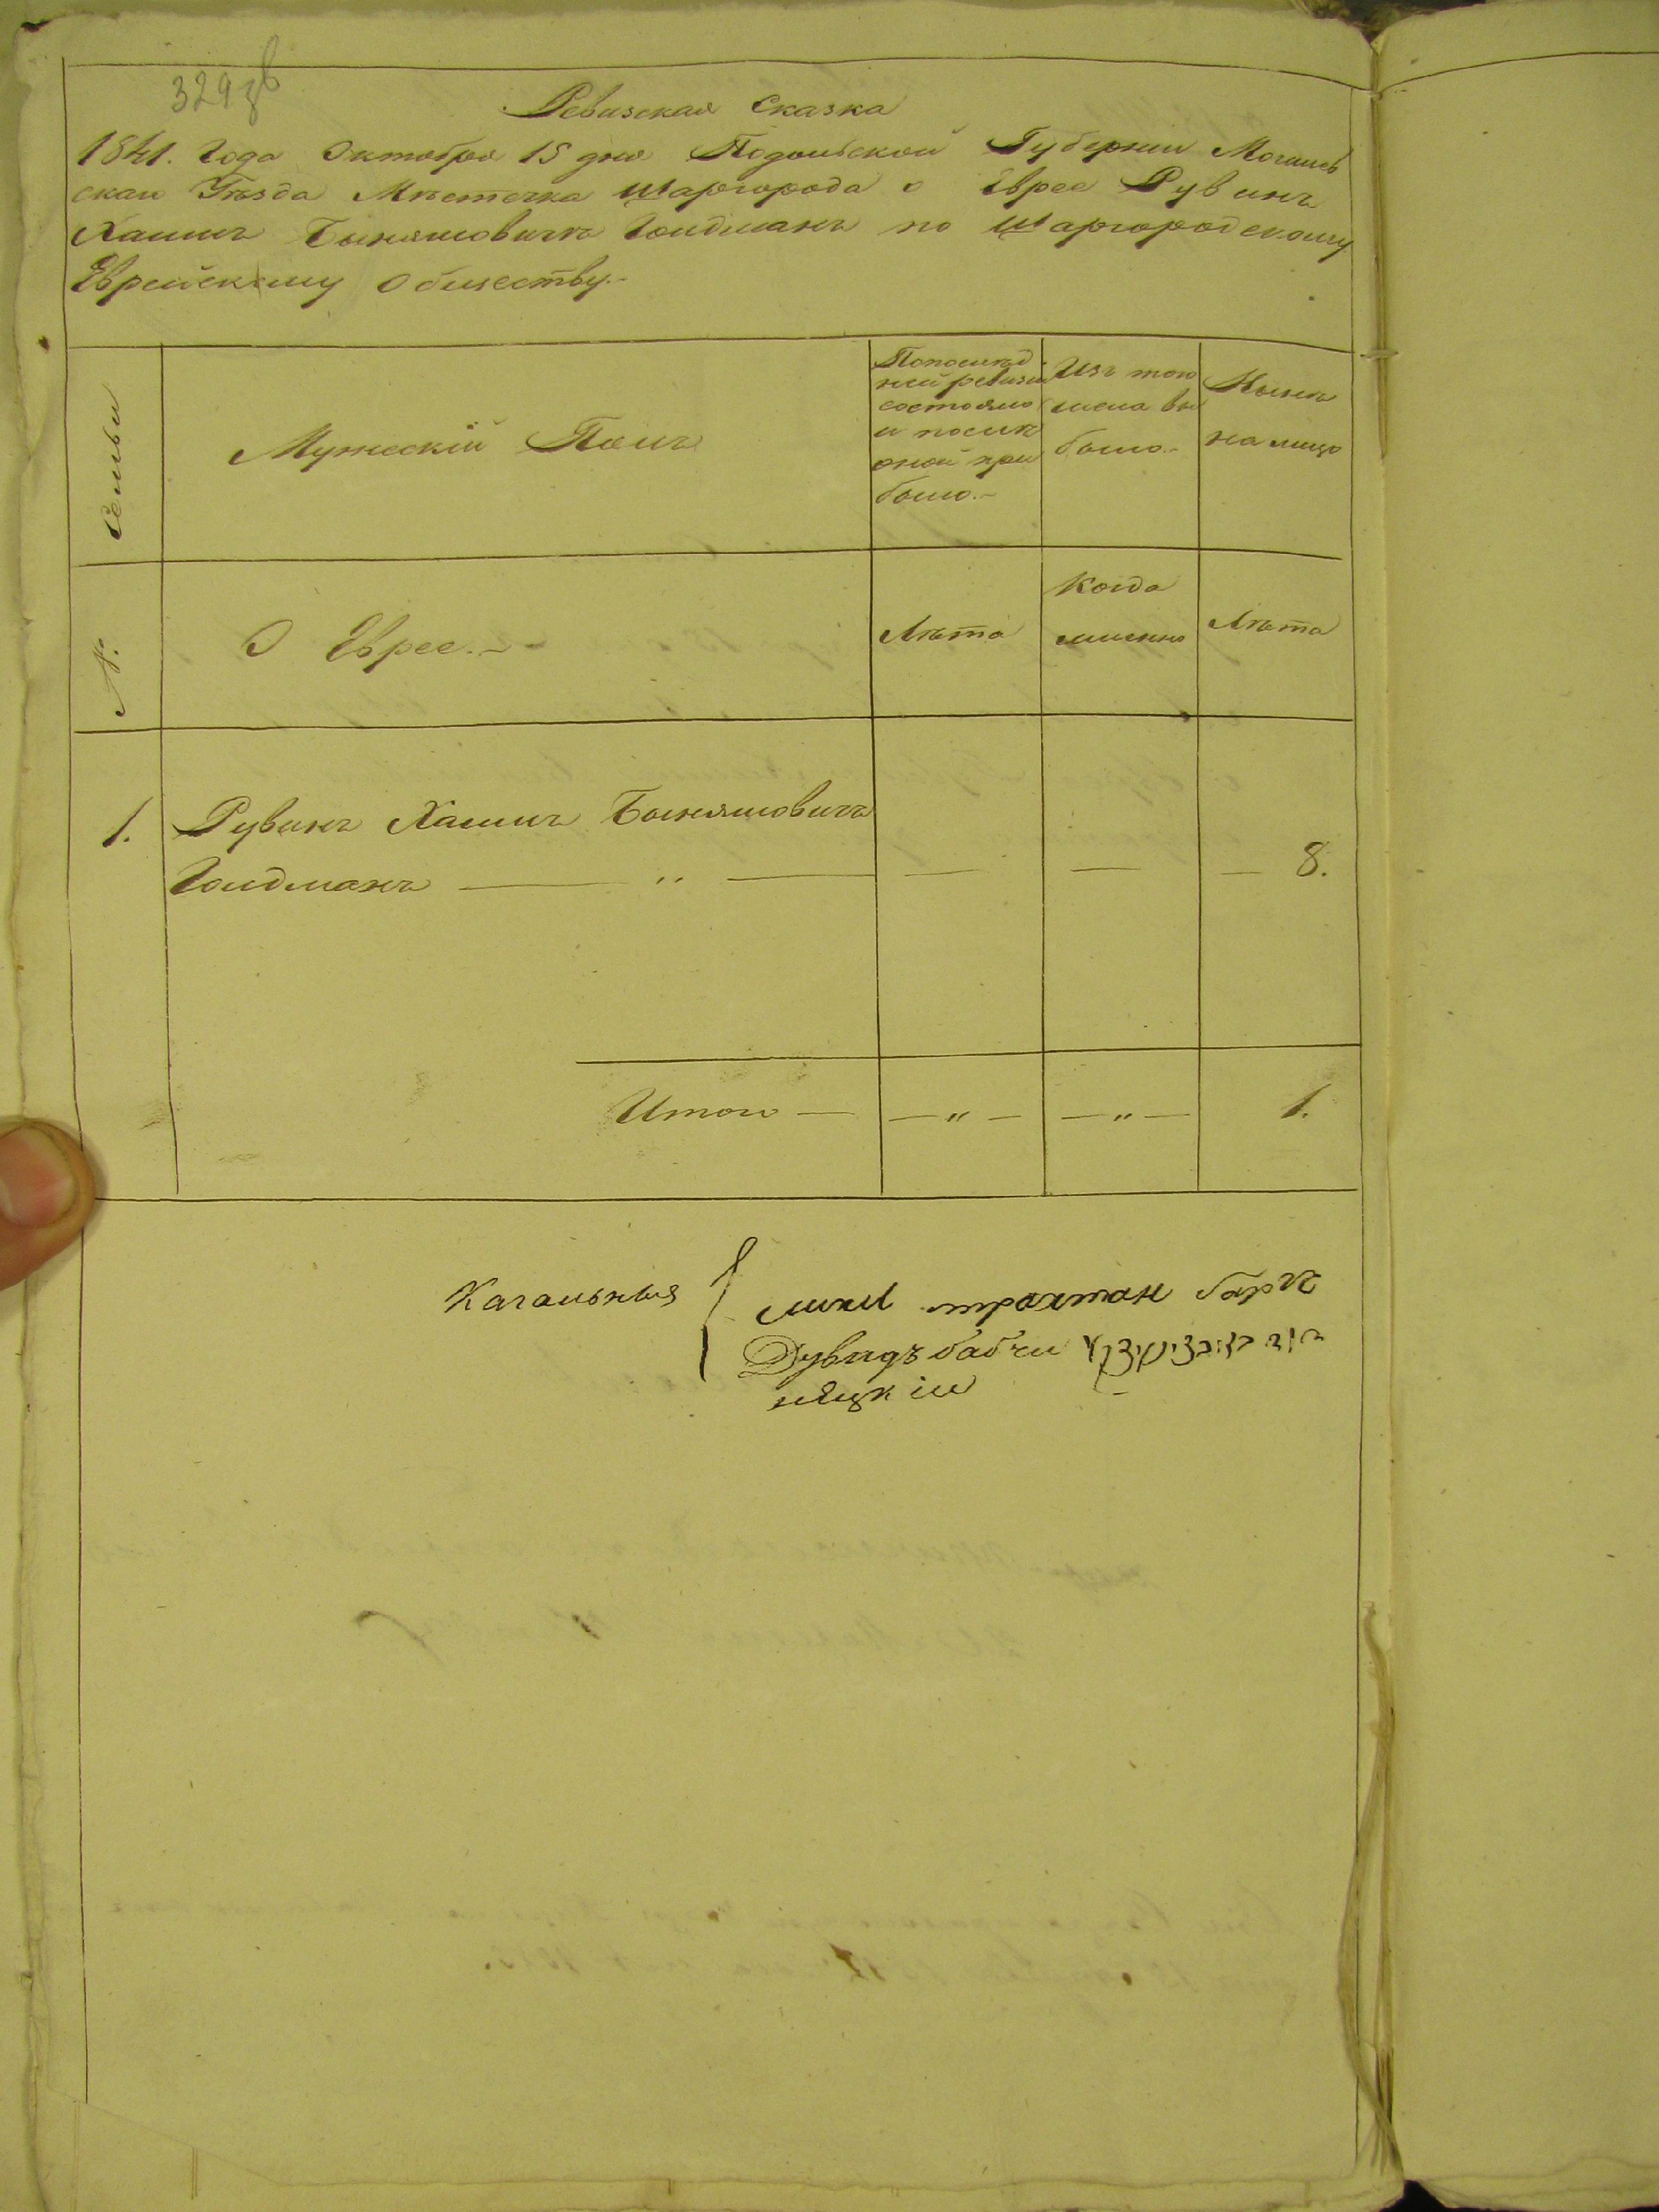 329 зв
Ревизская Сказка
1841. Года Октября 15 дня Подольской Губернии Могилев
скаго Уѣзда Мѣстечка Шаргорода о Еврее Рувинъ
Хаимъ Бынямовичъ Голдманъ по Шаргородскому
Еврейскому Обществу.-
Семьи
Мужескій Полъ
Попослѣд
ней ревизіи
состояло
и послѣ
оной при
было.-
Изъ того
числа вы
было.-
Нынѣ
на лицо
№.
О Еврее.-
Лѣта
Когда
именно
Лѣта
1. Рувинъ Хаимъ Бынямовичъ
Голдманъ — " — — — — 8.
Итого — — " — — " — 1.
Кагальныя
трахтан
Дувидъ бабчи
няцкій